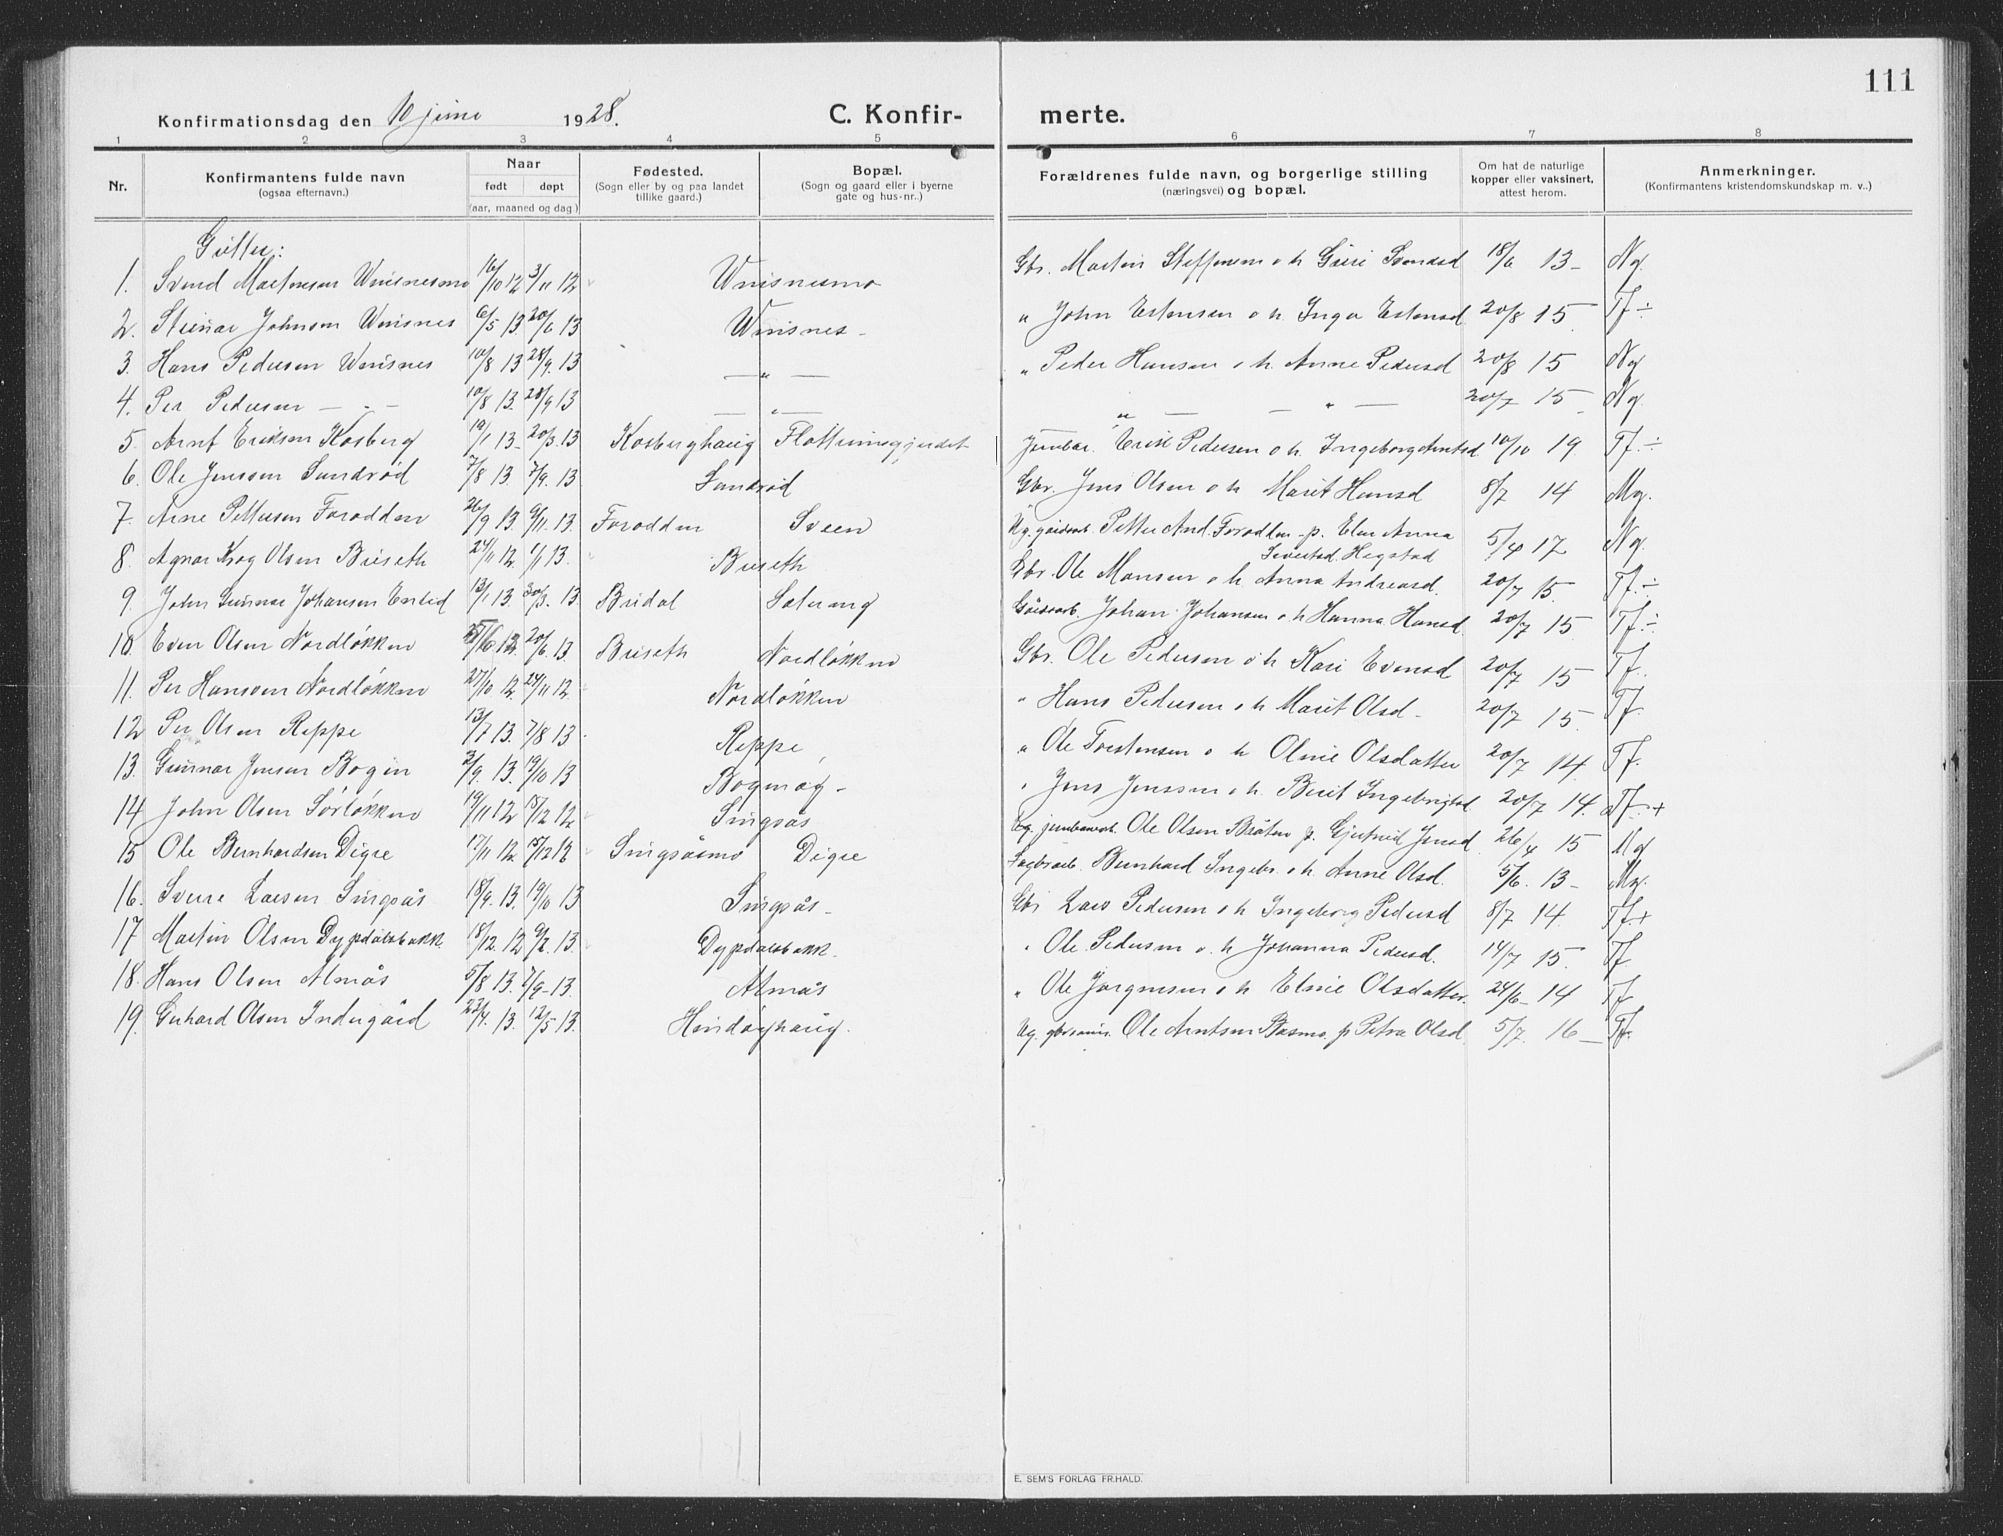 111
Konfirmationsdag den 10 juni 1928.
C. Konfirmerte.
1 2 3 4 5 6 7 8
Nr.
Konfirmantens fulde navn
(ogsaa efternavn.)
Naar
født døpt
(aar, maaned og dag.)
Fødested.
(Sogn eller by og paa landet
tillike gaard.)
Bopæl.
(Sogn og gaard eller i byerne
gate og hus-nr..)
Forældrenes fulde navn, og borgerlige stilling
(næringsvei) og bopæl.
Om hat de naturlige
kopper eller vaksinert,
attest herom.
Anmerkninger.
(Konfirmantens kristendomskundskap m. v..)
Gutter:
1. Svend Martinsen Winsnesmo 16/10 12 3/11 12 Winsnesmo Gbr. Martin Steffensen o h Guri Svendsd 18/6 13 - Ng.
2. Steinar Johnsen Winsnes 6/5 13 20/6 13 Winsnes - " John Estensen o h. Inga Estensd 20/8 15 Tf ÷
3. Hans Pedersen Winsnes 10/8 13 28/9. 13 — " — " Peder Hansen o h Anne Pedersd 20/8 15 Ng
4. Per Pedersen — " — 10/8 13. 28/9 13 — " — " — — " — 20/7 15 Ng.
5. Arnt Eriksen Kosberg 19/1 13 - 20/3. 13 Kosberghaug Flottumsgjerdet Jernbar. Erik Pedersen o h. Ingeborg Arntsd 10/10 19 Tf. ÷
6. Ole Jenssen Sandrød 7/8 13. 7/9. 13 Sandrød Gbr. Jens Olsen o h Marit Hansd 8/7 14 Mg.
7. Arne Pettersen Forodden 26/9 13. 9/11. 13. Forodden Sveen Ug. gaardsarb. Petter And. Forodden - p. Elen Anna
Sivertsd. Hegstad 5/4 17 Ng.
8. Agnar Krog Olsen Buseth 24/11 12. 1/1 13. Buseth Gbr. Ole Monsen o h. Anna Andreasd. 20/7 15. Tf. ÷
9. John Gunnar Johansen Enlid 13/1 13. 30/3. 13 Budal Gaardsarb. Johan Johansen o h Hanna Hansd. 20/7 15 Tf. ÷
10. Even Olsen Nordløkken 20/6 13 Buseth Nordløkken Gbr. Ole Pedersen o h Kari Evensd 20/7 15 Tf.
11. Per Hansen Nordløkken 27/10 12. 24/11 12. Nordløkken " Hans Pedersen o h Marit Olsd - 20/7 15. Tf.
12 Per Olsen Reppe 13/7 13. 7/8 13 Reppe " Ole Torstensen o h Oline Olsdatter 20/7 14. Tf.
13. Gunnar Jensen Bogen 2/9. 13. 19/10 13 " Jens Jenssen o h. Berit Ingebrigtsd 20/7 14. Tf. +
14 John Olsen Sørløkken 19/11 12 15/12 12 Singsås Ug. jernbanearb. Ole Olsen Bråten p. Gjertrud Jensd. 26/4 15 Mg
15 Ole Bernhardsen Digre 17/11 12. 15/12 12 Singsåsmo Digre Sagbrarb. Bernhard Ingebr. o h. Anne Olsd. 5/6. 13 - Mg.
16. Sverre Larsen Singsås 18/9. 13. 19/10 13 Singsås - Gbr Lars Pedersen o h Ingeborg Pedersd 8/7 14. Tf +
17 Martin Olsen Dypdalsbakk 18/12. 12 9/2. 13. Dypdalsbakk. " Ole Pedersen o. h Johanna Pedersd. 14/7 15. Tf
18. Hans Olsen Almås 5/8 13. 7/9 - 13. Almås " Ole Jørgensen o h Eline Olsdatter. 24/6 - 14 Tf
19. Gerhard Olsen Indergård 23/4. 13. 12/5 13. Hindøyhaug. Ug. Ole Arntsen Basmo, p Petra Olsd. 5/7. 16 — Tf.
E. SEM'S FORLAG FR.HALD.